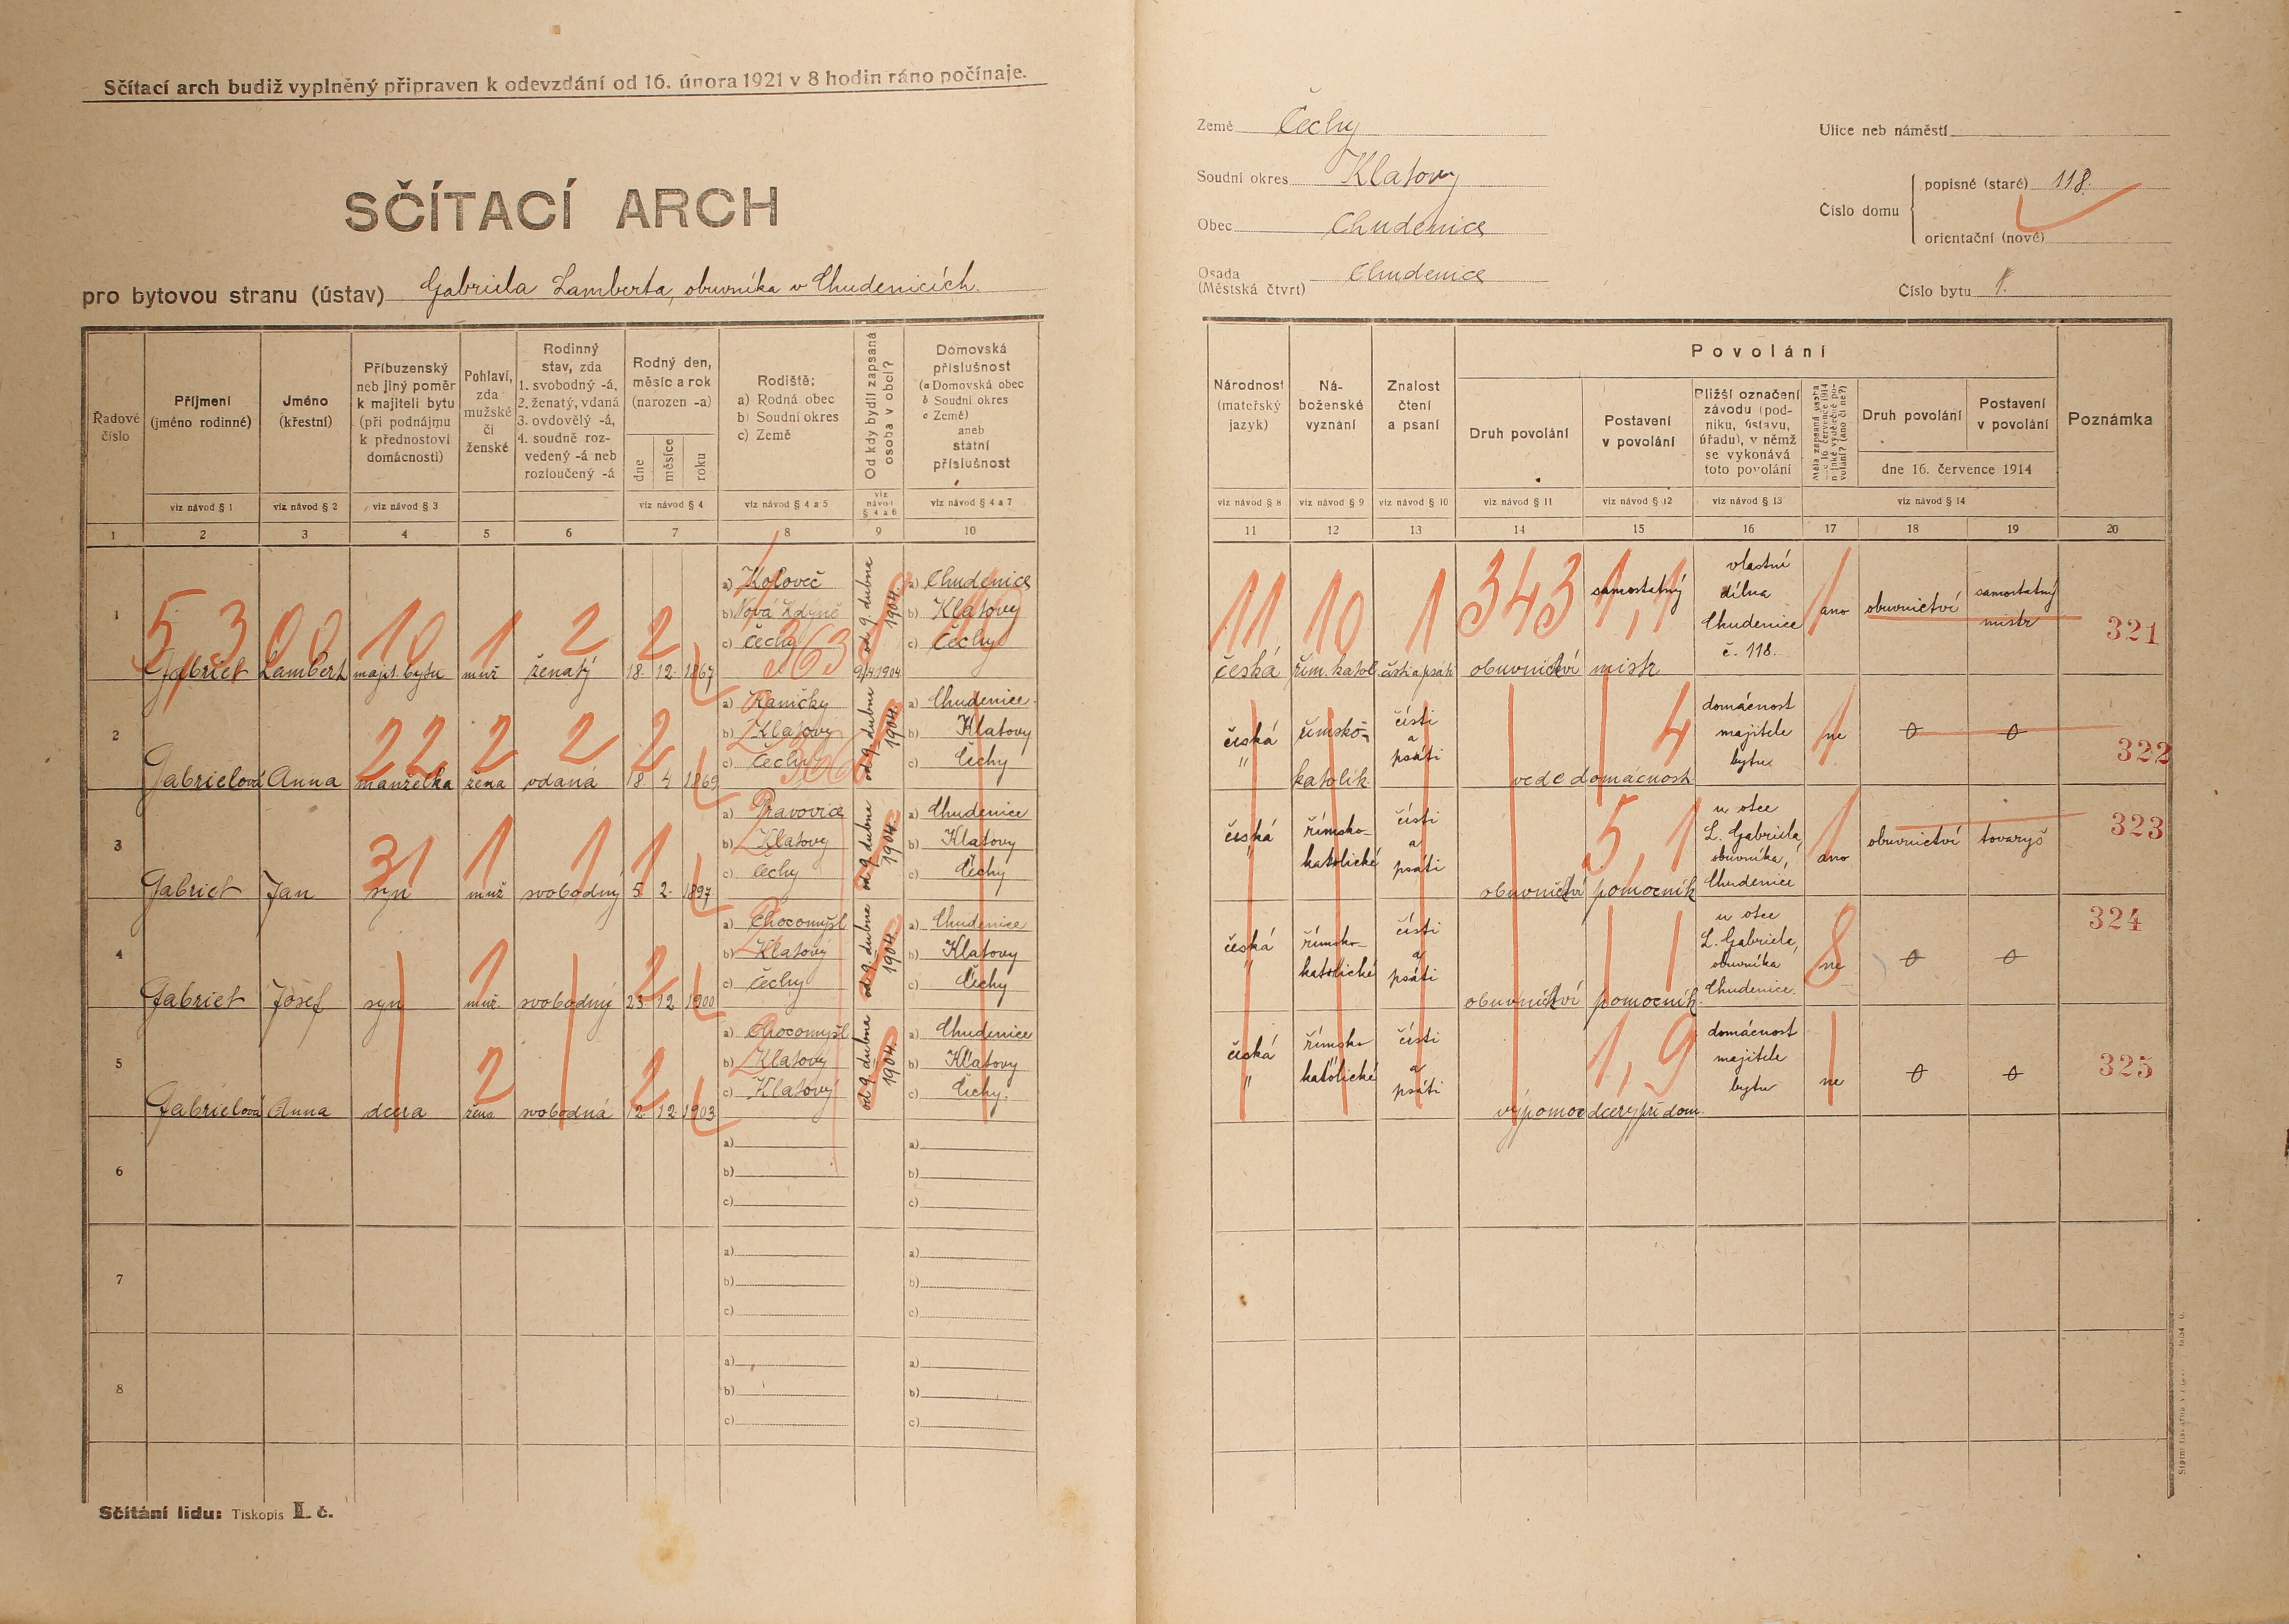 Sčítací arch budiž vyplněný připraven k odevzdání od 16. února 1921 v 8 hodin ráno počínaje.
SČÍTACÍ ARCH
pro bytovou stranu (ústav) Gabriela Lamberta, obuvníka v Chudenicích.
Řadové číslo
Příjmení (jméno rodinné)
Jméno (křestní)
Příbuzenský neb jiný poměr k majiteli bytu (při podnájmu k přednostovi domácnosti)
Pohlaví, zda mužské či ženské
Rodinný stav, zda 1. svobodný -á, 2. ženatý, vdaná 3. ovdovělý -á, 4. soudně rozvedený -á neb rozloučený -á
Rodný den, měsíc a rok (narozen -a)
dne měsíce roku
Rodiště: a) Rodná obec b) Soudní okres c) Země
Od kdy bydlí zapsaná osoba v obci?
Domovská příslušnost (a Domovská obec b Soudní okres c Země) aneb státní příslušnost
viz návod § 1 viz návod § 2 viz návod § 3 viz návod § 4 viz návod § 4 a 5 viz návod § 4 a 6 viz návod § 4 a 7
1 2 3 4 5 6 7 8 9 10
1 Gabriel Lambert majit. bytu muž ženatý 18. 12. 1867
a) Koloveč
b) Nová Kdyně
c) Čechy
od 9. dubna 1904.
9/4 1904
a) Chudenice
b) Klatovy
c) Čechy
5, 3 00 10 1 2 2 363
2 Gabrielová Anna manželka žena vdaná 18. 4 1869
a) Kaničky
b) Klatovy
c) Čechy
od 9. dubna 1904.
a) Chudenice
b) Klatovy
c) Čechy
22 2 2 2
3 Gabriel Jan syn muž svobodný 5. 2. 1897
a) Pravovice
b) Klatovy
c) Čechy
od 9. dubna 1904.
a) Chudenice
b) Klatovy
c) Čechy
31 1 1 1
4 Gabriel Josef syn muž svobodný 23. 12. 1900
a) Chocomyšl
b) Klatovy
c) Čechy
od 9. dubna 1904.
a) Chudenice
b) Klatovy
c) Čechy
1 2
5 Gabrielová Anna dcera žena svobodná 12. 12. 1903
a) Chocomyšl
b) Klatovy
c) Klatovy
od 9. dubna 1904.
a) Chudenice
b) Klatovy
c) Čechy.
2 2
6
a) a)
b) b)
c) c)
7
a) a)
b) b)
c) c)
8
a) a)
b) b)
c) c)
Sčítání lidu: Tiskopis I. č.
Země Čechy
Soudní okres Klatovy
Obec Chudenice
Osada (Městská čtvrt) Chudenice
Ulice neb náměstí
Číslo domu
popisné (staré) 118.
orientační (nové)
Číslo bytu 1.
Národnost (mateřský jazyk)
Náboženské vyznání
Znalost čtení a psaní
Povolání
Druh povolání
Postavení v povolání
Bližší označení závodu (podniku, ústavu, úřadu), v němž se vykonává toto povolání
Druh povolání
Postavení v povolání
dne 16. července 1914
Poznámka
viz návod § 8 viz návod § 9 viz návod § 10 viz návod § 11 viz návod § 12 viz návod § 13 viz návod § 14
11 12 13 14 15 16 17 18 19 20
11 10 1 343 1,1 1
česká řím. katol. čísti a psáti obuvnictví samostatný mistr
vlastní
dílna
Chudenice
č. 118.
ano obuvnictví samostatný mistr 321
česká " římsko-katolík čísti a psáti vede domácnost
4 1
domácnost
majitele
bytu
ne 0 0 322
česká " římsko-katolické čísti a psáti obuvnictví pomocník
5,1 1
u otce
L. Gabriela,
obuvníka,
Chudenice
ano obuvnictví tovaryš 323
česká " římsko-katolické čísti a psáti obuvnictví pomocník.
8
u otce
L. Gabriela,
obuvníka
Chudenice.
ne 0 0 324
česká " římsko katolické čísti a psáti výpomoc dcery při dom.
1,9
domácnost
majitele
bytu
ne 0 0 325